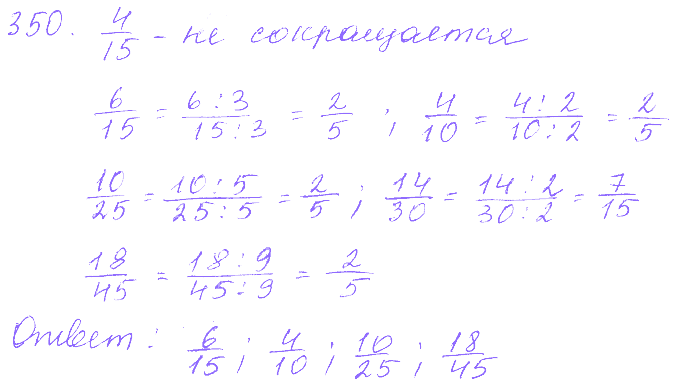 350. 4/15 - не сокращается
6/15 = 6:3/15:3 = 2/5 ; 4/10 = 4:2/10:2 = 2/5
10/25 = 10:5/25:5 = 2/5 ; 14/30 = 14:2/30:2 = 7/15
18/45 = 18:9/45:9 = 2/5
Ответ: 6/15 ; 4/10 ; 10/25 ; 18/45